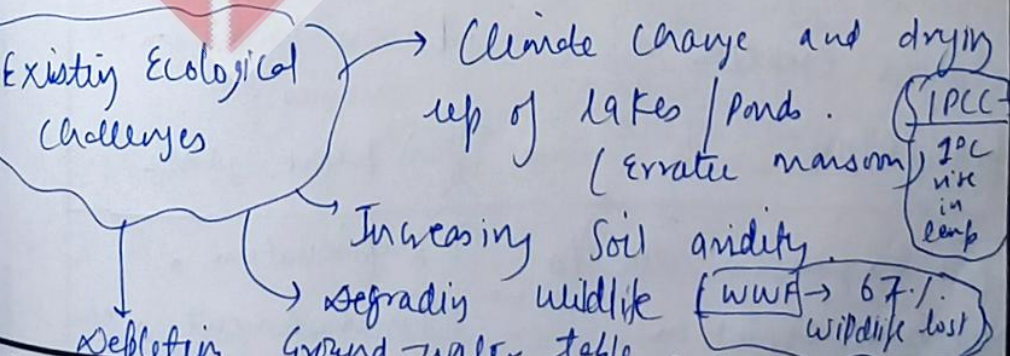 Existing Ecological
Challenges
→ Climate change and drying
up of lakes / Ponds .
(Erratic monsoon)
IPCC-
1°C
rise
in
temp
→ Increasing Soil aridity.
→ Degrading wildlife (WWF → 67.%.
wildlife lost)
Depleting Ground-water table